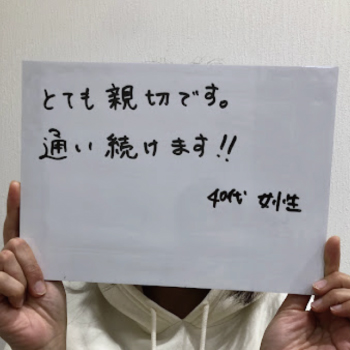 とても親切です。
通い続けます!!
40代 女性